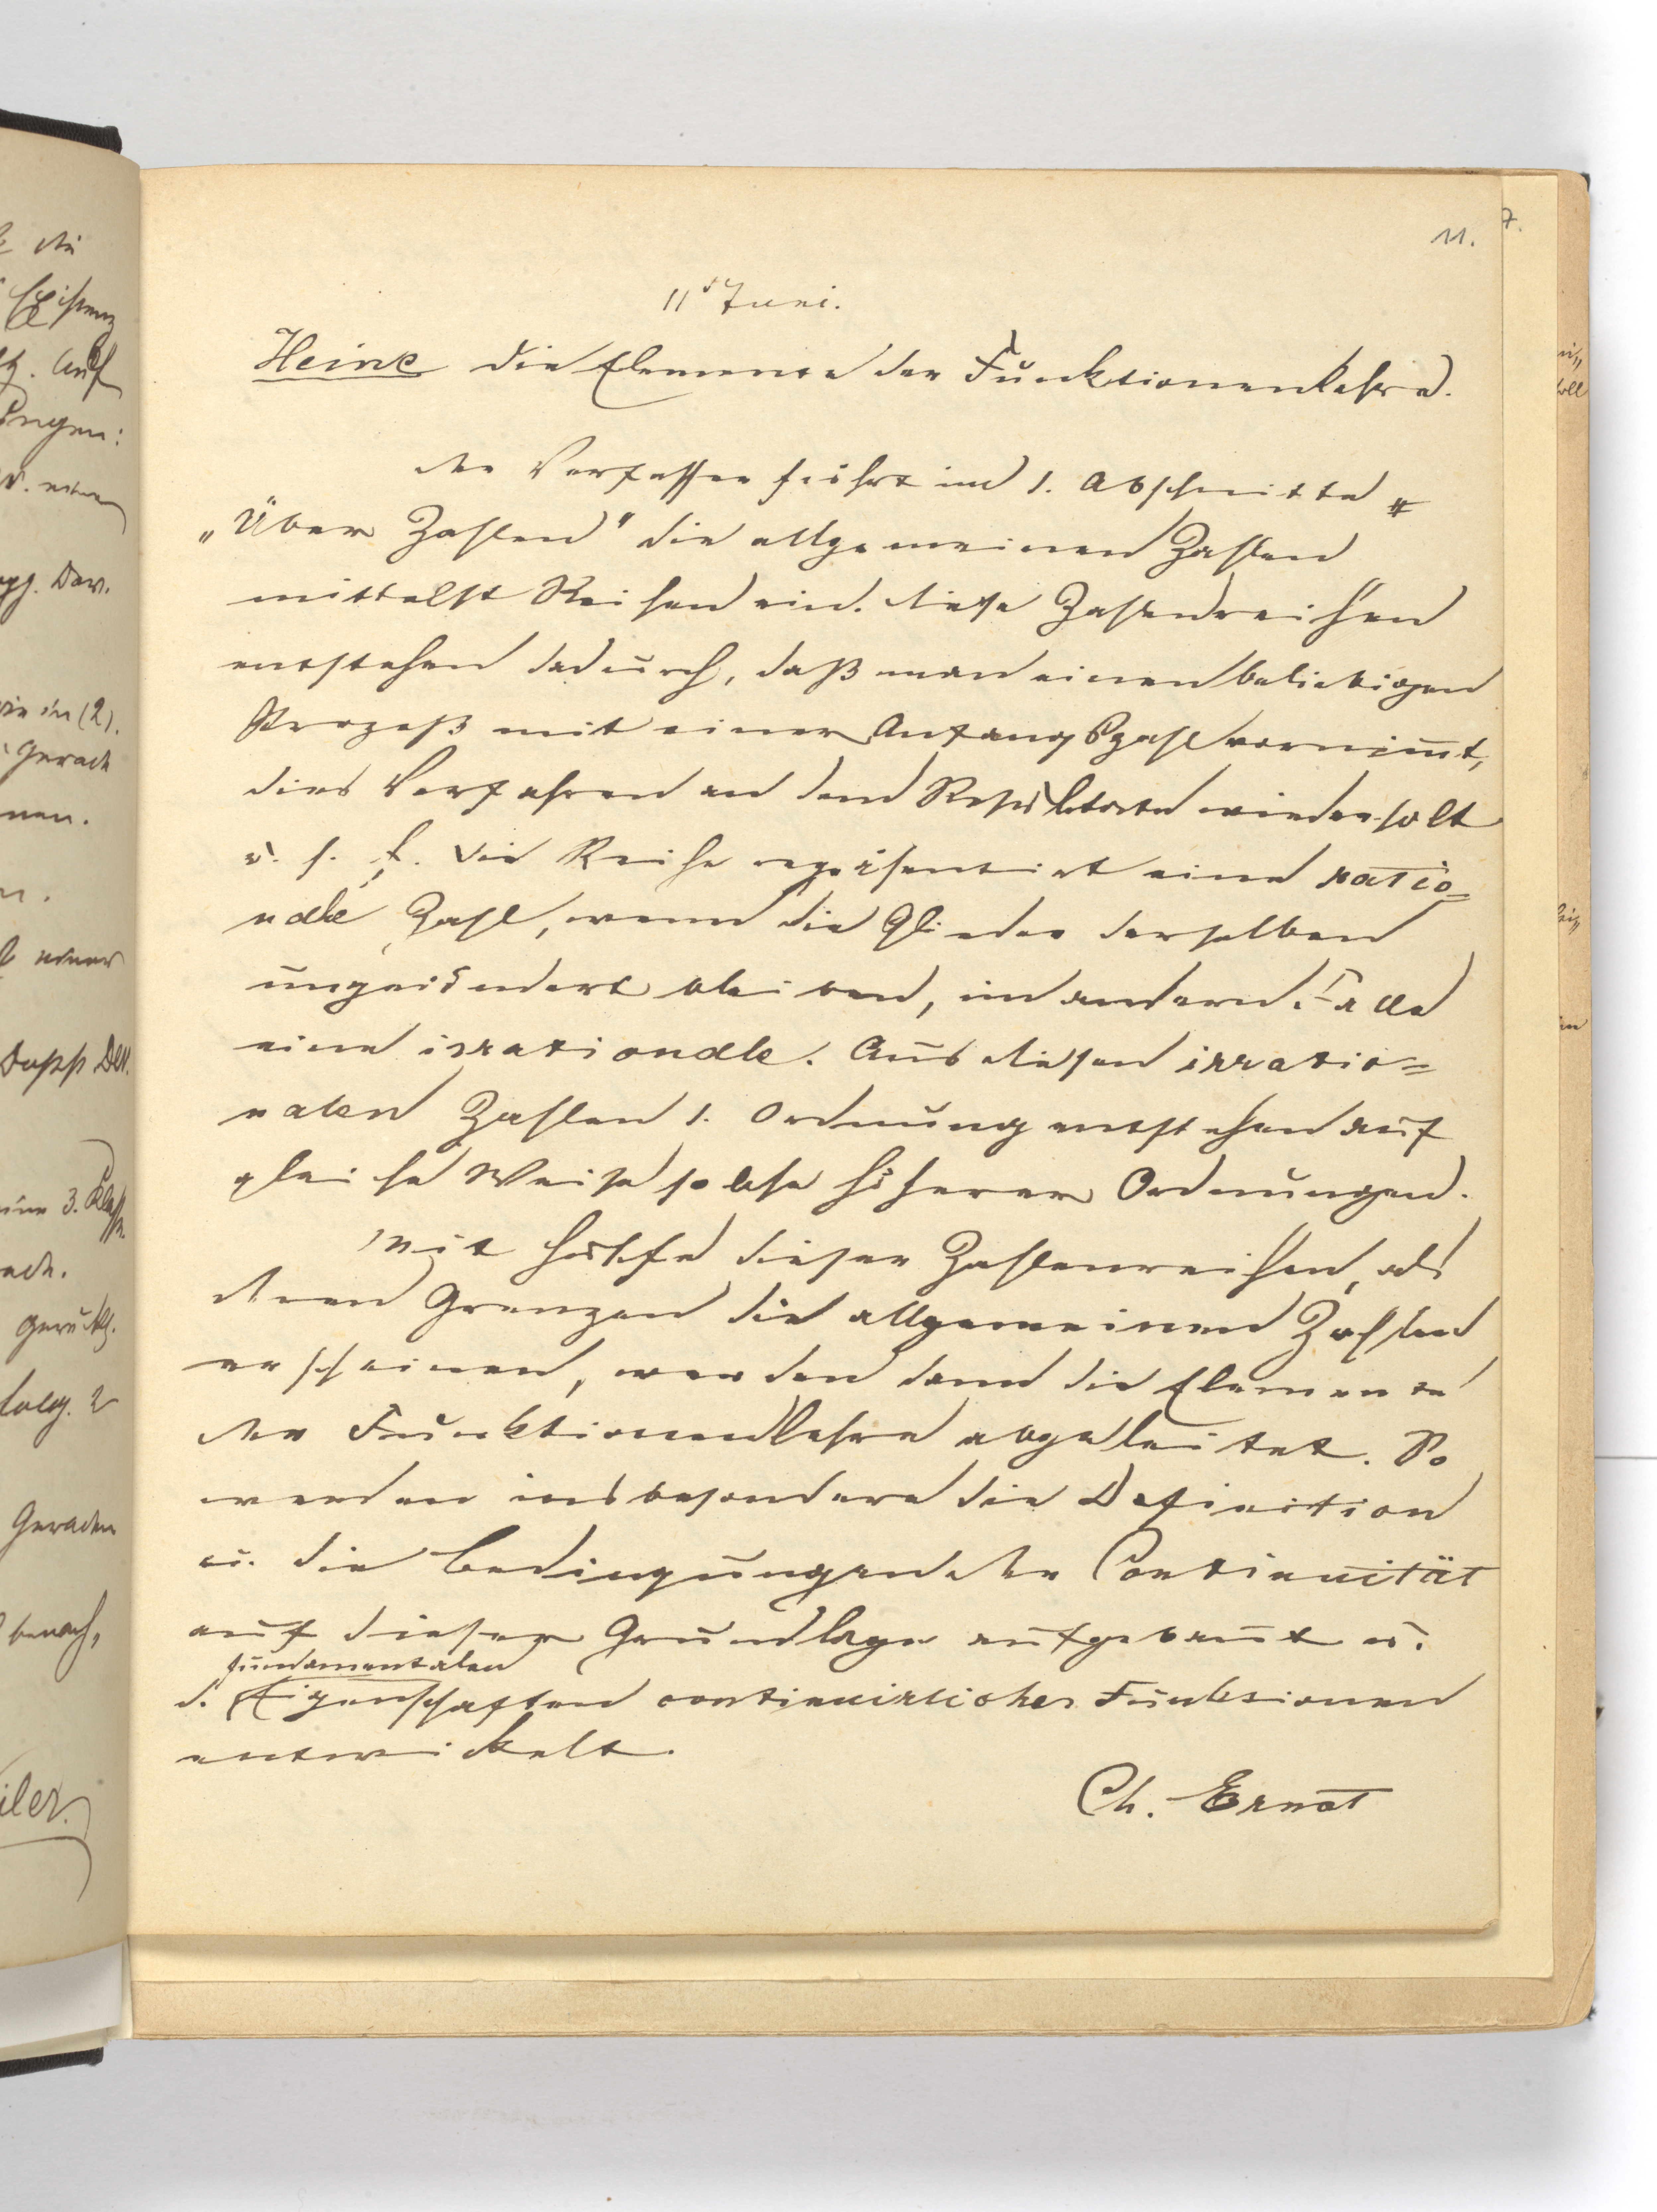 11.
7.
11 Juni.
Heine die Elemente der Funktionenlehre.
Der Verfasser führt im 1. Abschnitte
„Über Zahlen" die allgemeinen Zahlen
mittelst Reihen ein. Diese Zahlenreihen
entstehen dadurch, daß man einen beliebigen
Prozeß mit einer Anfangszahl vornim̄t,
dies Verfahren an dem Resultate wiederholt
u. s. f. Die Reihe repräsentirt eine ratio=
nale Zahl, wenn die Glieder derselben
ungeändert bleiben, im andern Falle
eine irrationale. Aus diesen irratio=
nalen Zahlen 1. Ordnung entstehen auf
gleiche Weise solche höherer Ordnungen.
Mit Hülfe dieser Zahlenreihen, als
deren Grenzen die allgemeinen Zahlen
erscheinen, werden dann die Elemente
der Funktionenlehre abgeleitet. So
werden insbesondere die Definition
u. die Bedingungen der Continuität
auf dieser Grundlage aufgebaut u.
fundamentalen
d. Eigenschaften continuirlicher Funktionen
entwickelt.
Ch. Ernst